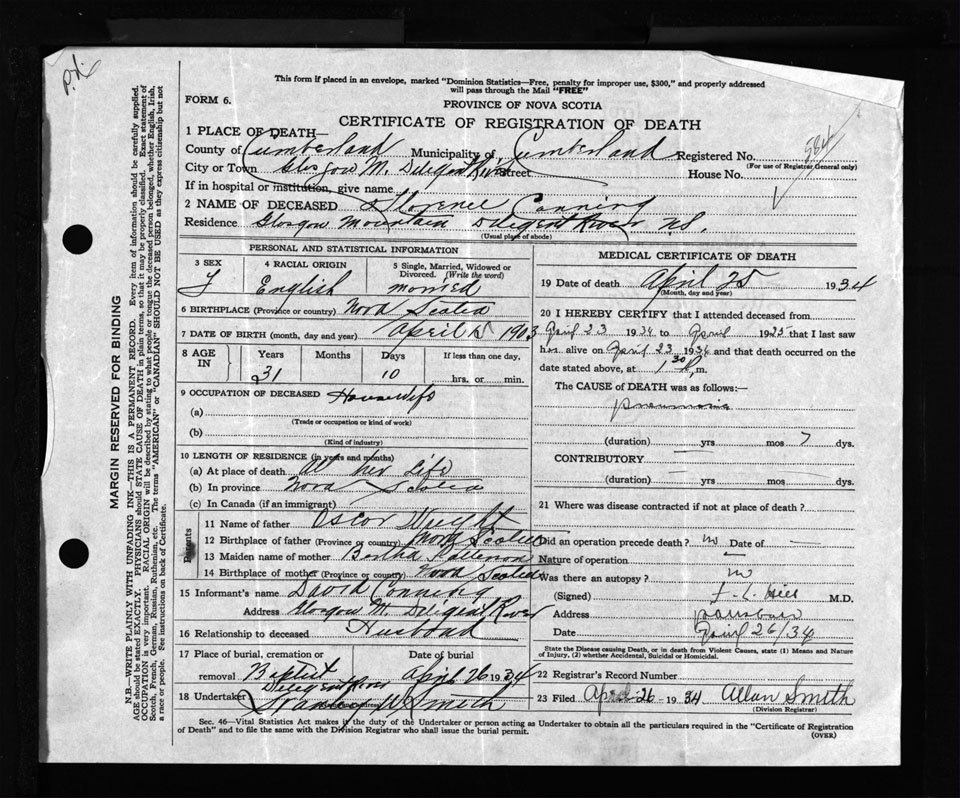 P.N.
This form if placed in an envelope, marked "Dominion Statistics—Free, penalty for improper use, $300," and properly addressed
will pass through the Mail "FREE"
FORM 6.
PROVINCE OF NOVA SCOTIA
CERTIFICATE OF REGISTRATION OF DEATH
584
1 PLACE OF DEATH—
County of Cumberland Municipality of Cumberland Registered No.
(For use of Registrar General only)
City or Town Glasgow M. Diligent River Street House No.
If in hospital or institution, give name
2 NAME OF DECEASED Florence Canning
Residence Glasgow Mountain Diligent River N.S.
(Usual place of abode)
PERSONAL AND STATISTICAL INFORMATION
3 SEX 4 RACIAL ORIGIN 5 Single, Married, Widowed or Divorced. (Write the word)
F English married
6 BIRTHPLACE (Province or country) Nova Scotia
7 DATE OF BIRTH (month, day and year) April 15 1903
8 AGE IN Years Months Days If less than one day,
31 10 hrs. or min.
9 OCCUPATION OF DECEASED Housewife
(a)
(Trade or occupation or kind of work)
(b)
(Kind of industry)
10 LENGTH OF RESIDENCE (in years and months)
(a) At place of death All her Life
(b) In province Nova Scotia
(c) In Canada (if an immigrant)
Parents
11 Name of father Oscar Wright
12 Birthplace of father (Province or country) Nova Scotia
13 Maiden name of mother Bertha Patterson
14 Birthplace of mother (Province or country) Nova Scotia
15 Informant's name David Canning
Address Glasgow M. Diligent River
16 Relationship to deceased Husband
17 Place of burial, cremation or removal Date of burial
Baptist Diligent River April 26 1934
18 Undertaker W Smith
MEDICAL CERTIFICATE OF DEATH
19 Date of death April 25 1934
(Month, day and year)
20 I HEREBY CERTIFY that I attended deceased from
April 23 1934 to April 1925 that I last saw
her alive on April 23 1934 and that death occurred on the
date stated above, at 1 30 P.m.
The CAUSE OF DEATH was as follows:—
pneumonia
(duration) yrs mos 7 dys.
CONTRIBUTORY
(duration) yrs mos dys.
21 Where was disease contracted if not at place of death?
Did an operation precede death? no Date of
Nature of operation
Was there an autopsy? no
(Signed) Hill M.D.
Address Parrsboro
Date April 26/34
State the Disease causing Death, or in death from Violent Causes, state (1) Means and Nature
of Injury, (2) whether Accidental, Suicidal or Homicidal.
22 Registrar's Record Number
23 Filed April 26 1934 Allan Smith
(Division Registrar)
Sec. 46—Vital Statistics Act makes it the duty of the Undertaker or person acting as Undertaker to obtain all the particulars required in the "Certificate of Registration
of Death" and to file the same with the Division Registrar who shall issue the burial permit.
(OVER)
MARGIN RESERVED FOR BINDING
N.B.—WRITE PLAINLY WITH UNFADING INK—THIS IS A PERMANENT RECORD. Every item of information should be carefully supplied.
AGE should be stated EXACTLY. PHYSICIANS should STATE CAUSE OF DEATH in plain terms, so that it may be properly classified. Exact statement of
OCCUPATION is very important. RACIAL ORIGIN will be described by stating to what people or tongue the deceased person belonged, whether English, Irish,
Scotch, French, German, Russian, Ruthenian, etc. The terms "AMERICAN" or "CANADIAN" SHOULD NOT BE USED as they express citizenship but not
a race or people. See instructions on back of Certificate.